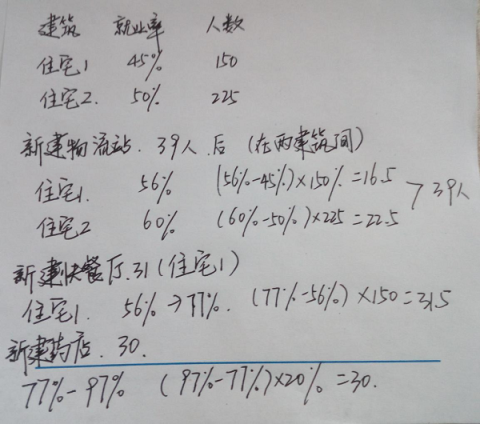 建筑 就业率 人数
住宅1 45% 150
住宅2. 50% 225
新建物流站. 39人.后 (在两建筑间)
住宅1. 56% (56%-45%)×150%=16.5
住宅2 60% (60%-50%)×225=22.5 > 39人
新建快餐厅.31(住宅1)
住宅1. 56%→77%. (77%-56%)×150=31.5
新建药店. 30.
77%-97% (97%-77%)×20%=30.